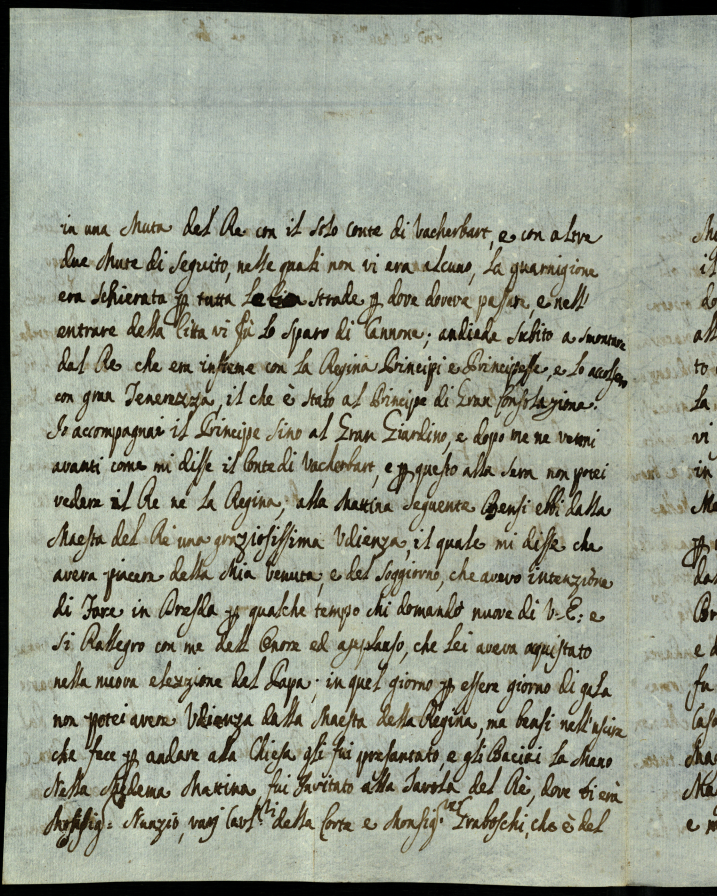 in una Muta del Re con il solo Conte di Vacherbart, e con altre
due Mute di seguito, nelle quali non vi era alcuno, La guarnigione
era schierata p tutta strade p dove doveva passare, e nell'
entrare della Citta vi fù Lo sparo di Cannone; andiede subito a smontare
dal Re che era insieme con La Regina Principi e Principesse, e Lo accolsero
con gran Tenerezza, il che è stato al Principe di Gran Consolazione.
Io accompagnai il Principe sino al Gran Giardino, e dopo me ne venni
avanti come mi disse il Conte di Vacherbart, e p questo alla sera non potei
vedere il Re nè La Regina; alla Mattina seguente Bensi ebbi dalla
Maesta del Rè una graziosissima Vdienza, il quale mi disse che
aveva piacere della Mia Venuta, e del soggiorno, che avevo intenzione
di Fare in Dresda p qualche tempo Mi domandò nuove di V: E: e
si Rallegro con me dell Onore ed applauso, che Lei aveva aquistato
nella nuova elezzione del Papa; in quel giorno p essere giorno di gala
non potei avere Vdienza dalla Maesta della Regina, ma bensi nell'uscire
che fece p andare alla Chiesa gli fui presantato, e gli Baciai La Mano
Nella Medema Mattina fui Invitato alla Tavola del Rè, dove vi era
Monsig: Nunzio, varj Cav.ri della Corte e Monsig.r Graboschi, che è del